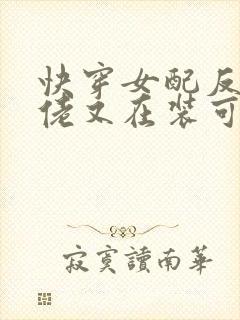 快穿女配反
佬又在装可
寂寞讀南華